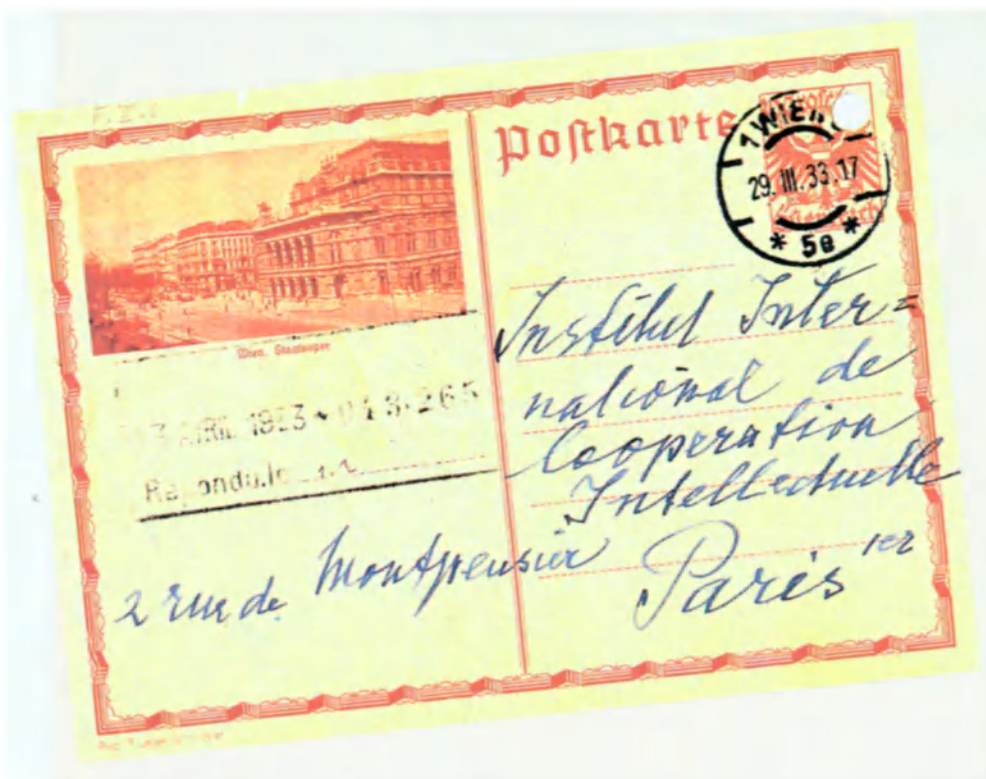 Postkarte
WIEN
29.III.33.17
* 5e *
Wien. Staatsoper
AVRIL 1933 * 013.265
Répondu le
Institut Inter=
national de
Cooperation
Intellectuelle
2 rue de Montpensier
Paris 1er